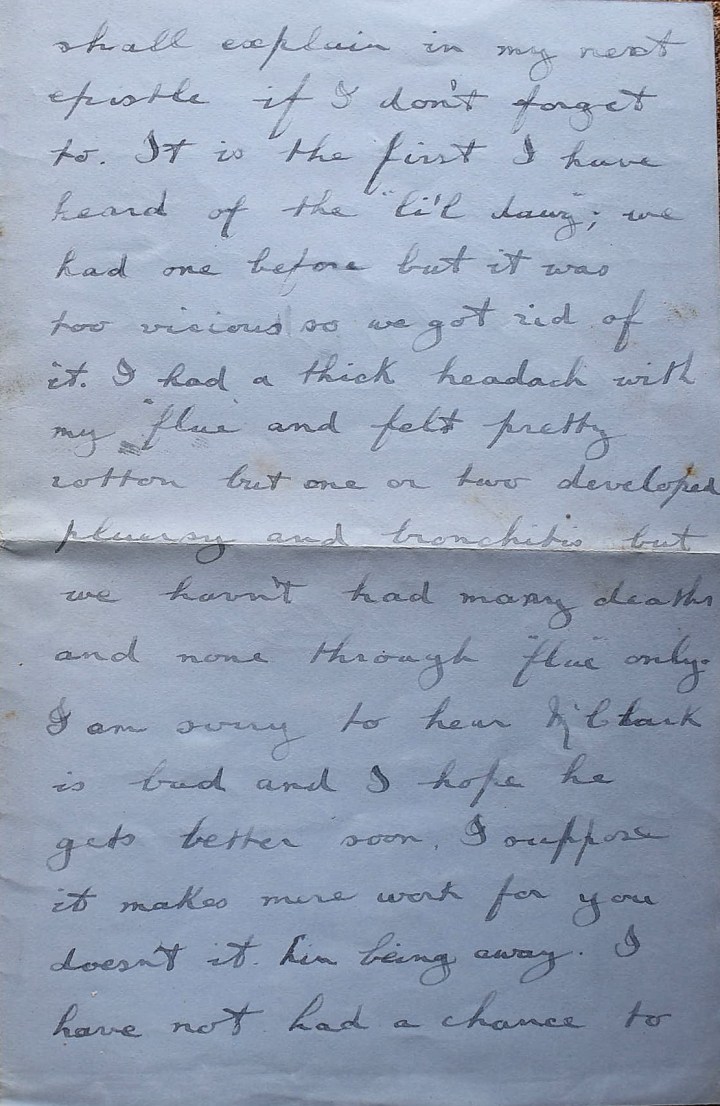 shall explain in my next
epistle if I don't forget
to. It is the first I have
heard of the "li'l dawg"; we
had one before but it was
too vicious so we got rid of
it. I had a thick headach with
my "flue" and felt pretty
rotton but one or two developed
pluersy and bronchitis but
we havn't had many deaths
and none through "flue" only.
I am sorry to hear Clark
is bad and I hope he
gets better soon. I suppose
it makes more work for you
doesn't it him being away. I
have not had a chance to